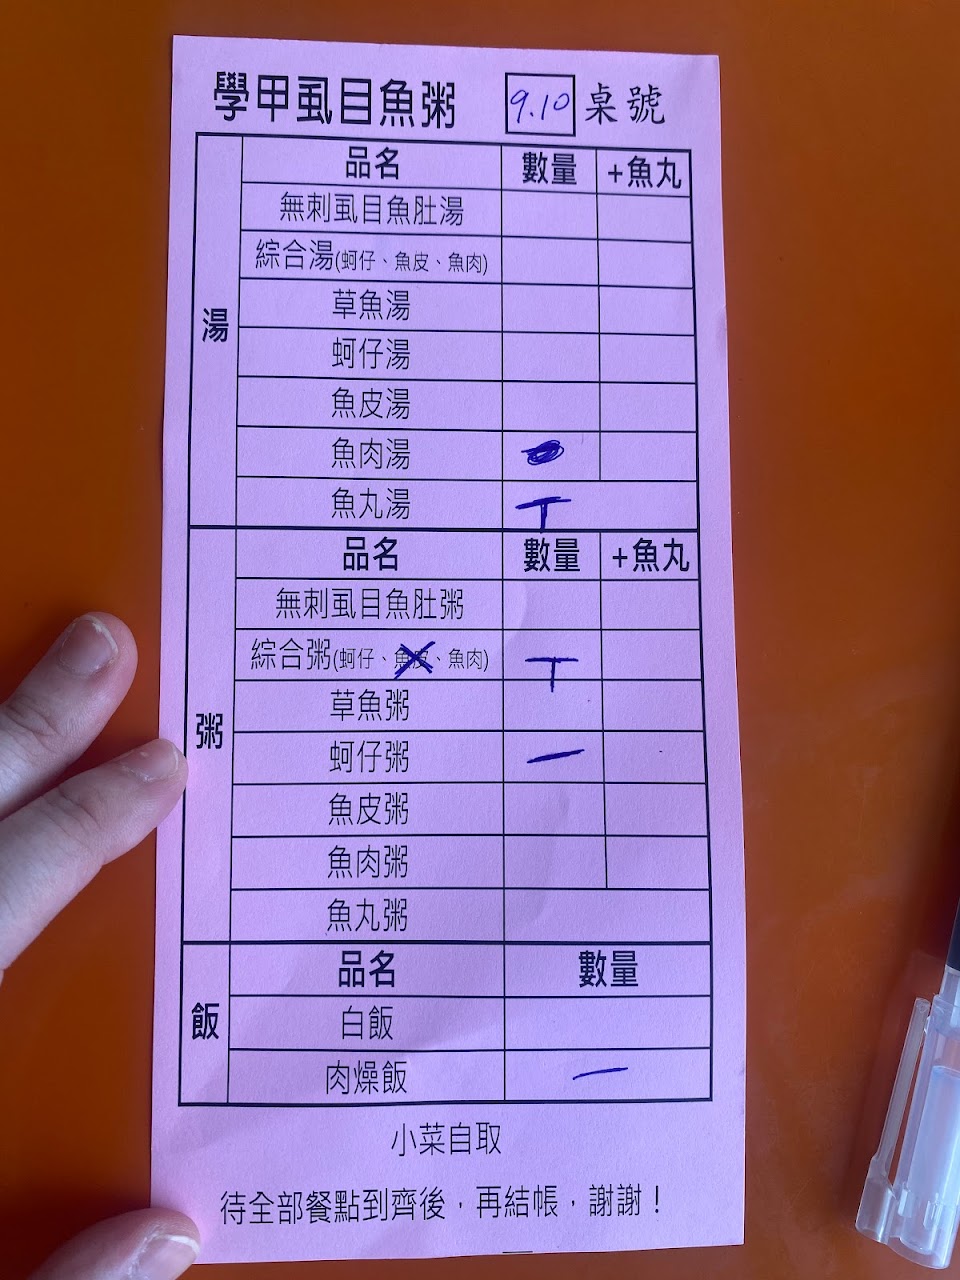 學甲虱目魚粥 9.10 桌號
湯
品名 數量 +魚丸
無刺虱目魚肚湯
綜合湯(蚵仔、魚皮、魚肉)
草魚湯
蚵仔湯
魚皮湯
魚肉湯
魚丸湯 丅
粥
品名 數量 +魚丸
無刺虱目魚肚粥
綜合粥(蚵仔、魚皮、魚肉) 丅
草魚粥
蚵仔粥 一
魚皮粥
魚肉粥
魚丸粥
飯
品名 數量
白飯
肉燥飯 一
小菜自取
待全部餐點到齊後，再結帳，謝謝！